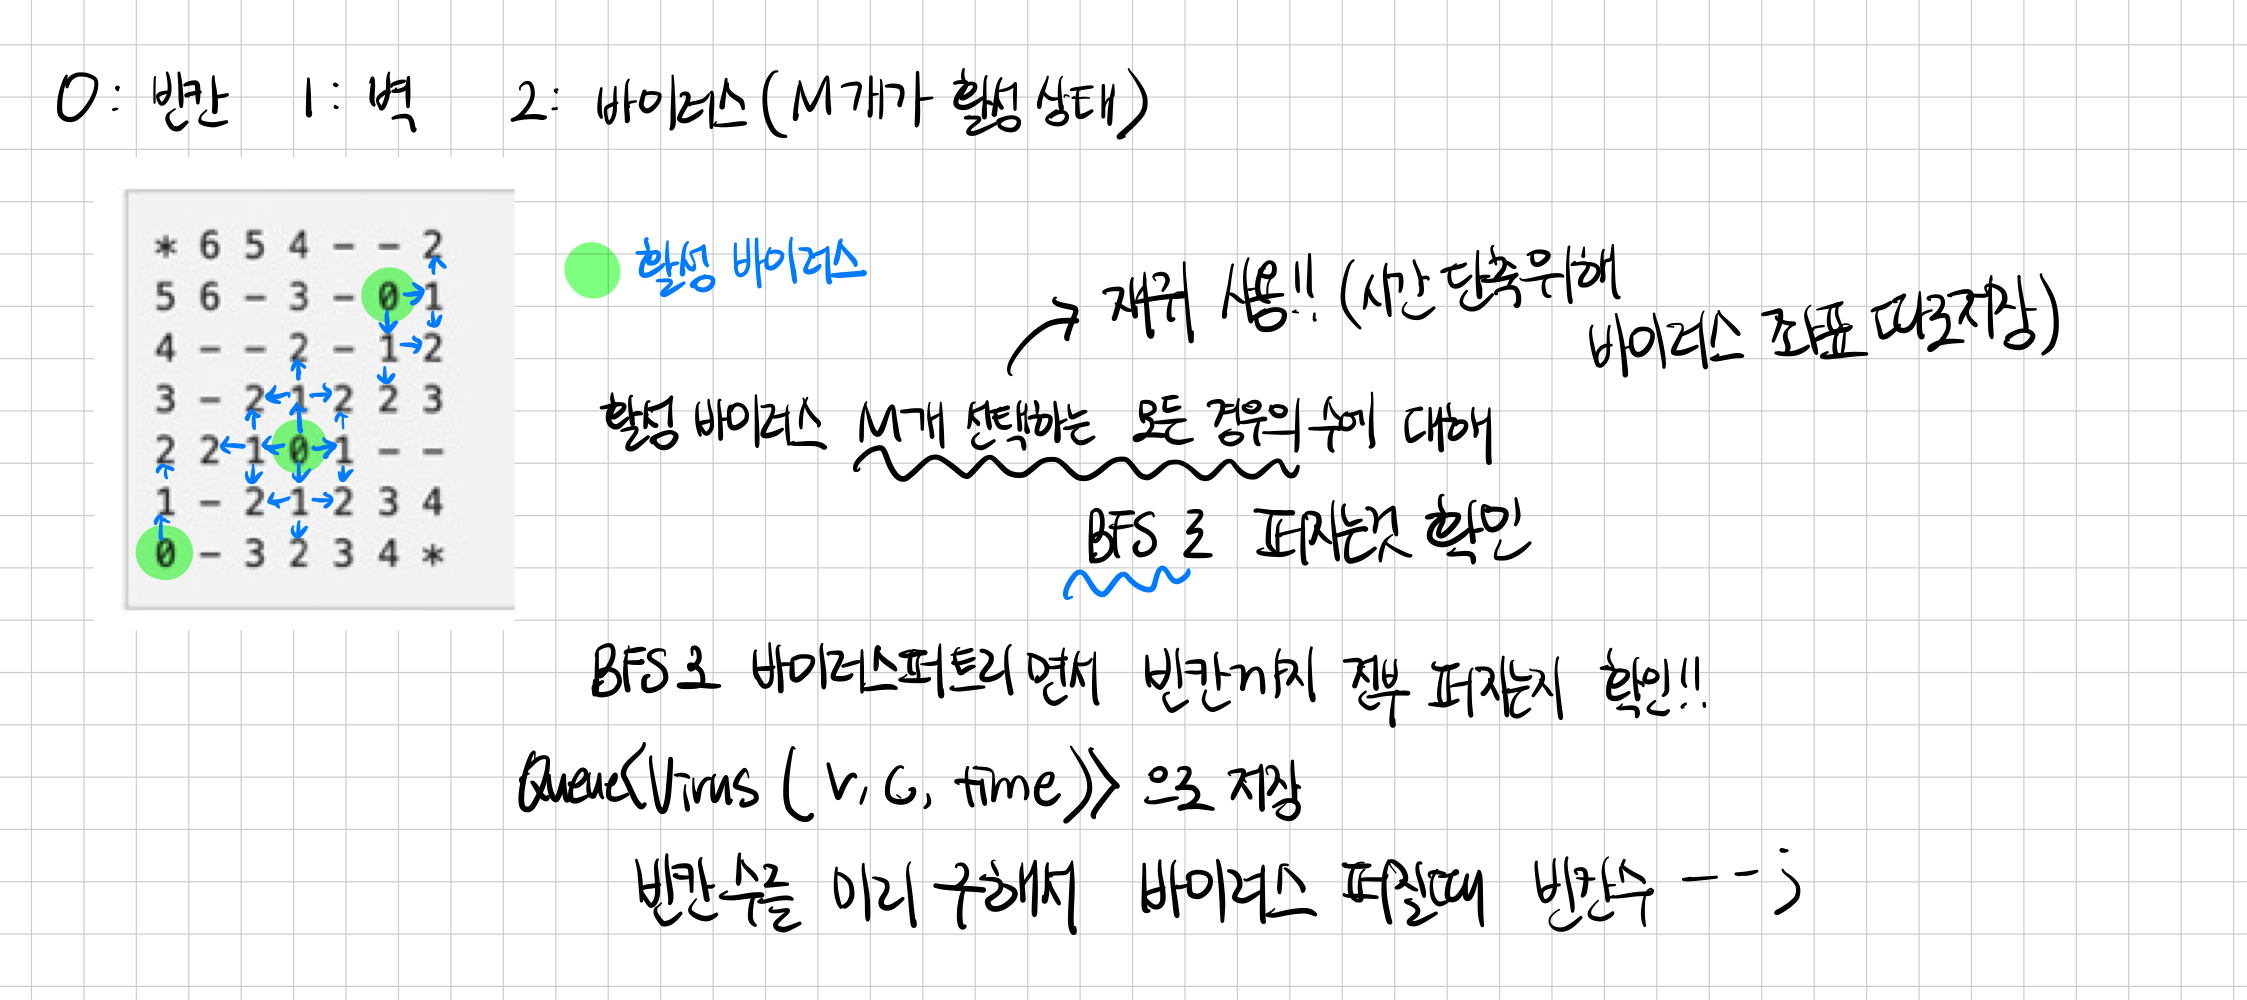 0:빈칸 1: 벽 2: 바이러스(M개가 활성 상태)
* 6 5 4 - - 2
5 6 - 3 - 0 1
4 - - 2 - 1 2
3 - 2 1 2 2 3
2 2 1 0 1 - -
1 - 2 1 2 3 4
0 - 3 2 3 4 *
활성 바이러스
재귀 사용!! (시간 단축위해
바이러스 좌표 따로저장)
활성 바이러스 M개 선택하는 모든 경우의 수에 대해
BFS로 퍼지는것 확인
BFS로 바이러스퍼트리면서 빈칸까지 전부 퍼지는지 확인!!
Queue<Virus (r, c, time)>으로 저장
빈칸수를 미리 구해서 바이러스 퍼질때 빈칸수 --;